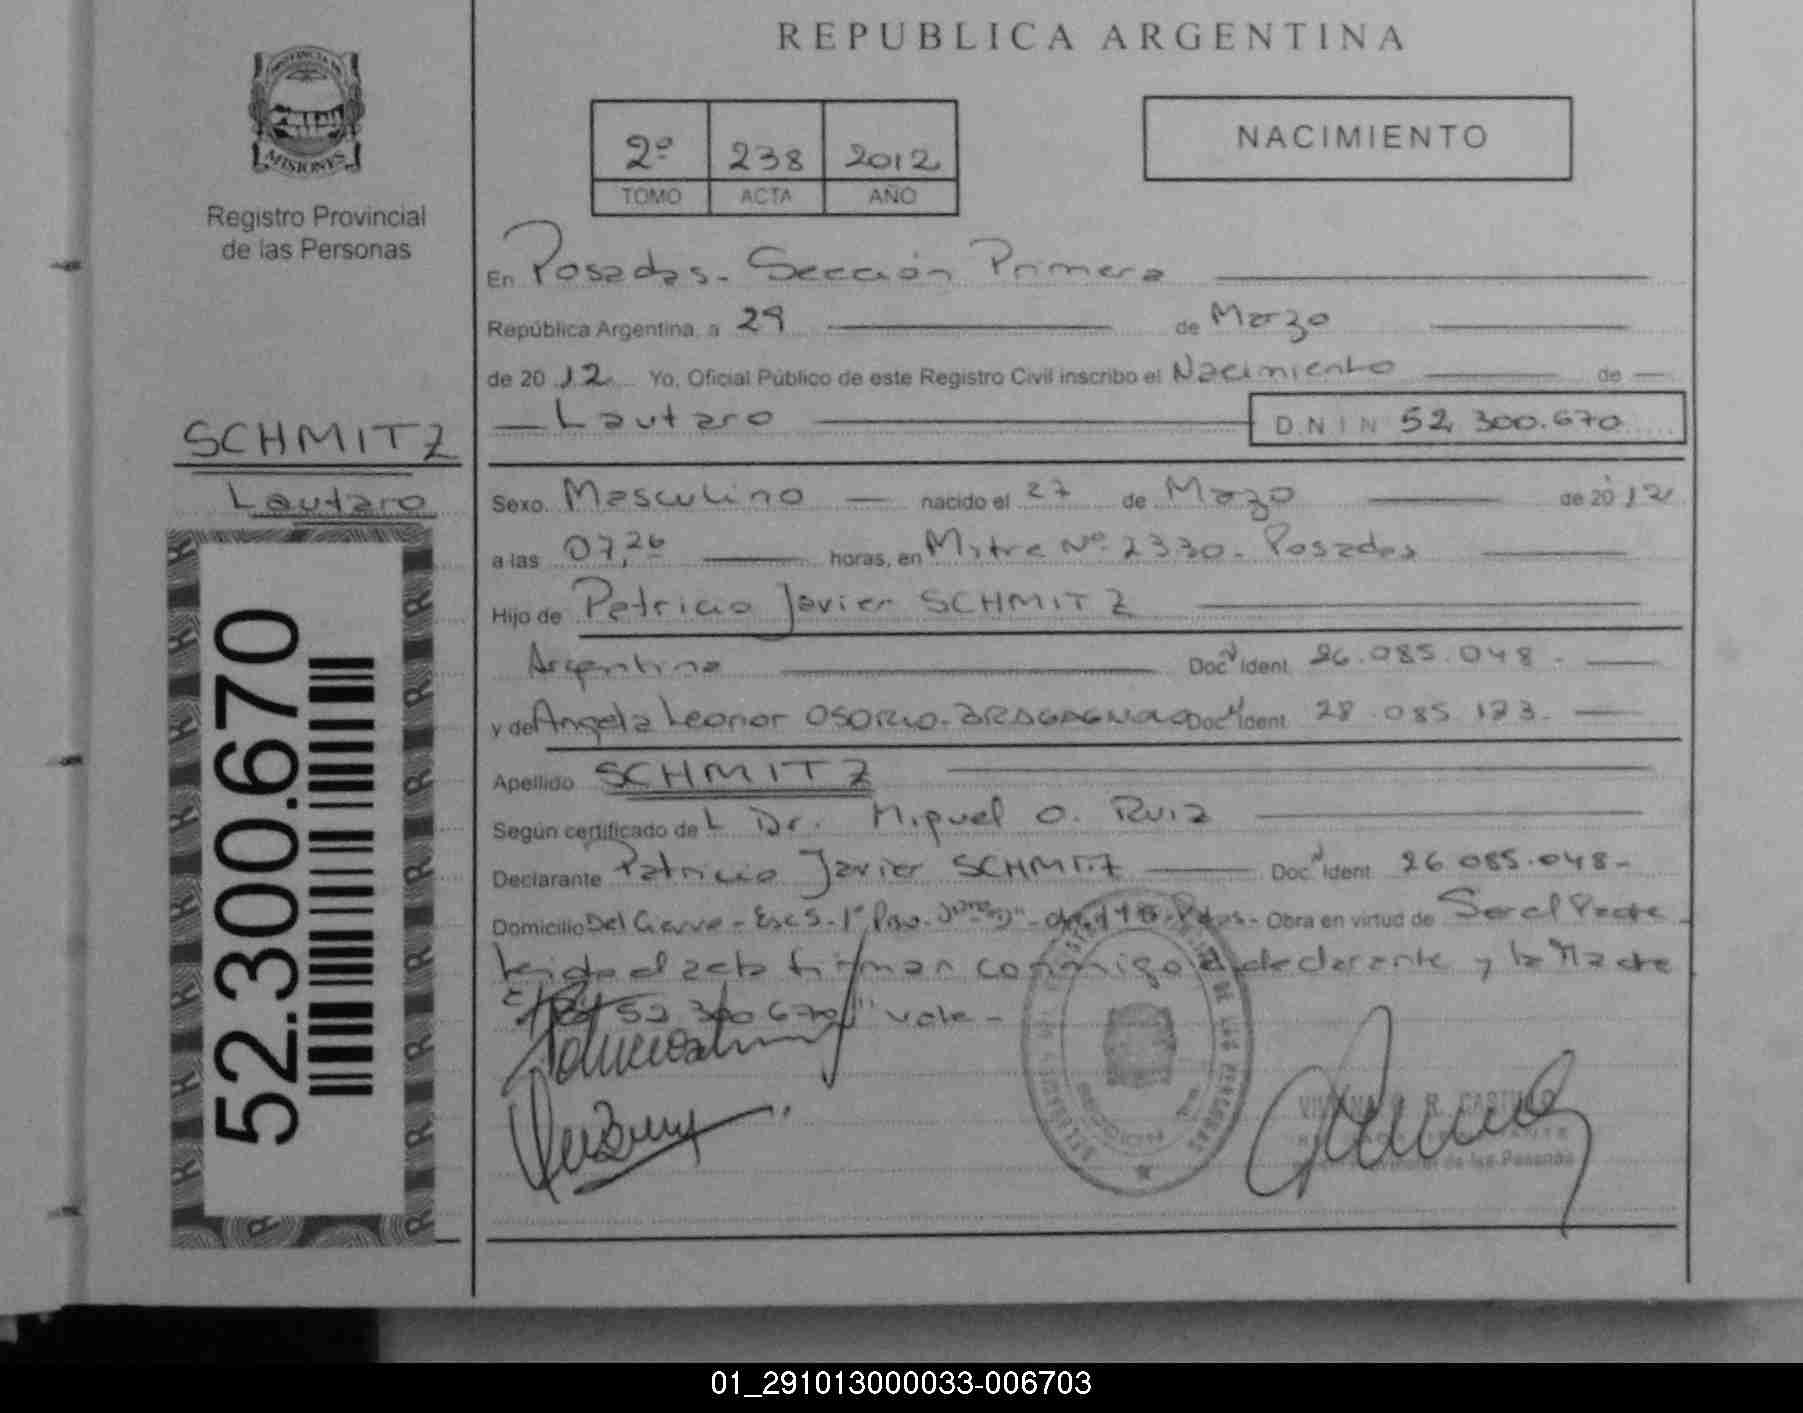 REPUBLICA ARGENTINA
MISIONES
Registro Provincial
de las Personas
2º 238 2012
TOMO ACTA AÑO
NACIMIENTO
En Posadas - Sección Primera
República Argentina, a 29 de Marzo
de 2012 Yo, Oficial Público de este Registro Civil inscribo el Nacimiento de
Lautaro D N I N 52.300.670
SCHMITZ
Lautaro
52.300.670
Sexo Masculino nacido el 27 de Marzo de 2012
a las 07,26 horas, en Mitre Nº 2330 - Posadas
Hijo de Patricio Javier SCHMITZ
Argentina Doc N Ident. 26.085.048 -
y de Angela Leonor OSORIO - BRAGAGNOLO Doc N Ident. 28.085.123 -
Apellido SCHMITZ
Según certificado de L Dr. Miguel O. Ruiz
Declarante Patricio Javier SCHMITZ Doc N Ident. 26.085.048 -
Domicilio - Obra en virtud de Ser el Padre
Leida el acta firman conmigo el declarante y la Madre
52.300.670 " vale -
R. CASTILLO
de las Personas
01_291013000033-006703